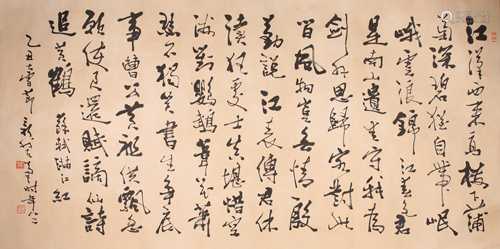 江漢西來高樓下蒲
萄深碧猶自帶岷
峨雪浪錦江春色君
是南山遺愛守我為
劍外思歸客對此
間風物豈無情殷
勤說江表傳君休
讀狂處士真堪惜空
洲對鸚鵡葦花蕭
瑟獨笑書生爭底
事曹公黃祖俱飄忽
願使君還賦謫仙詩
追黃鶴 蘇軾滿江紅
乙丑 書時年八二